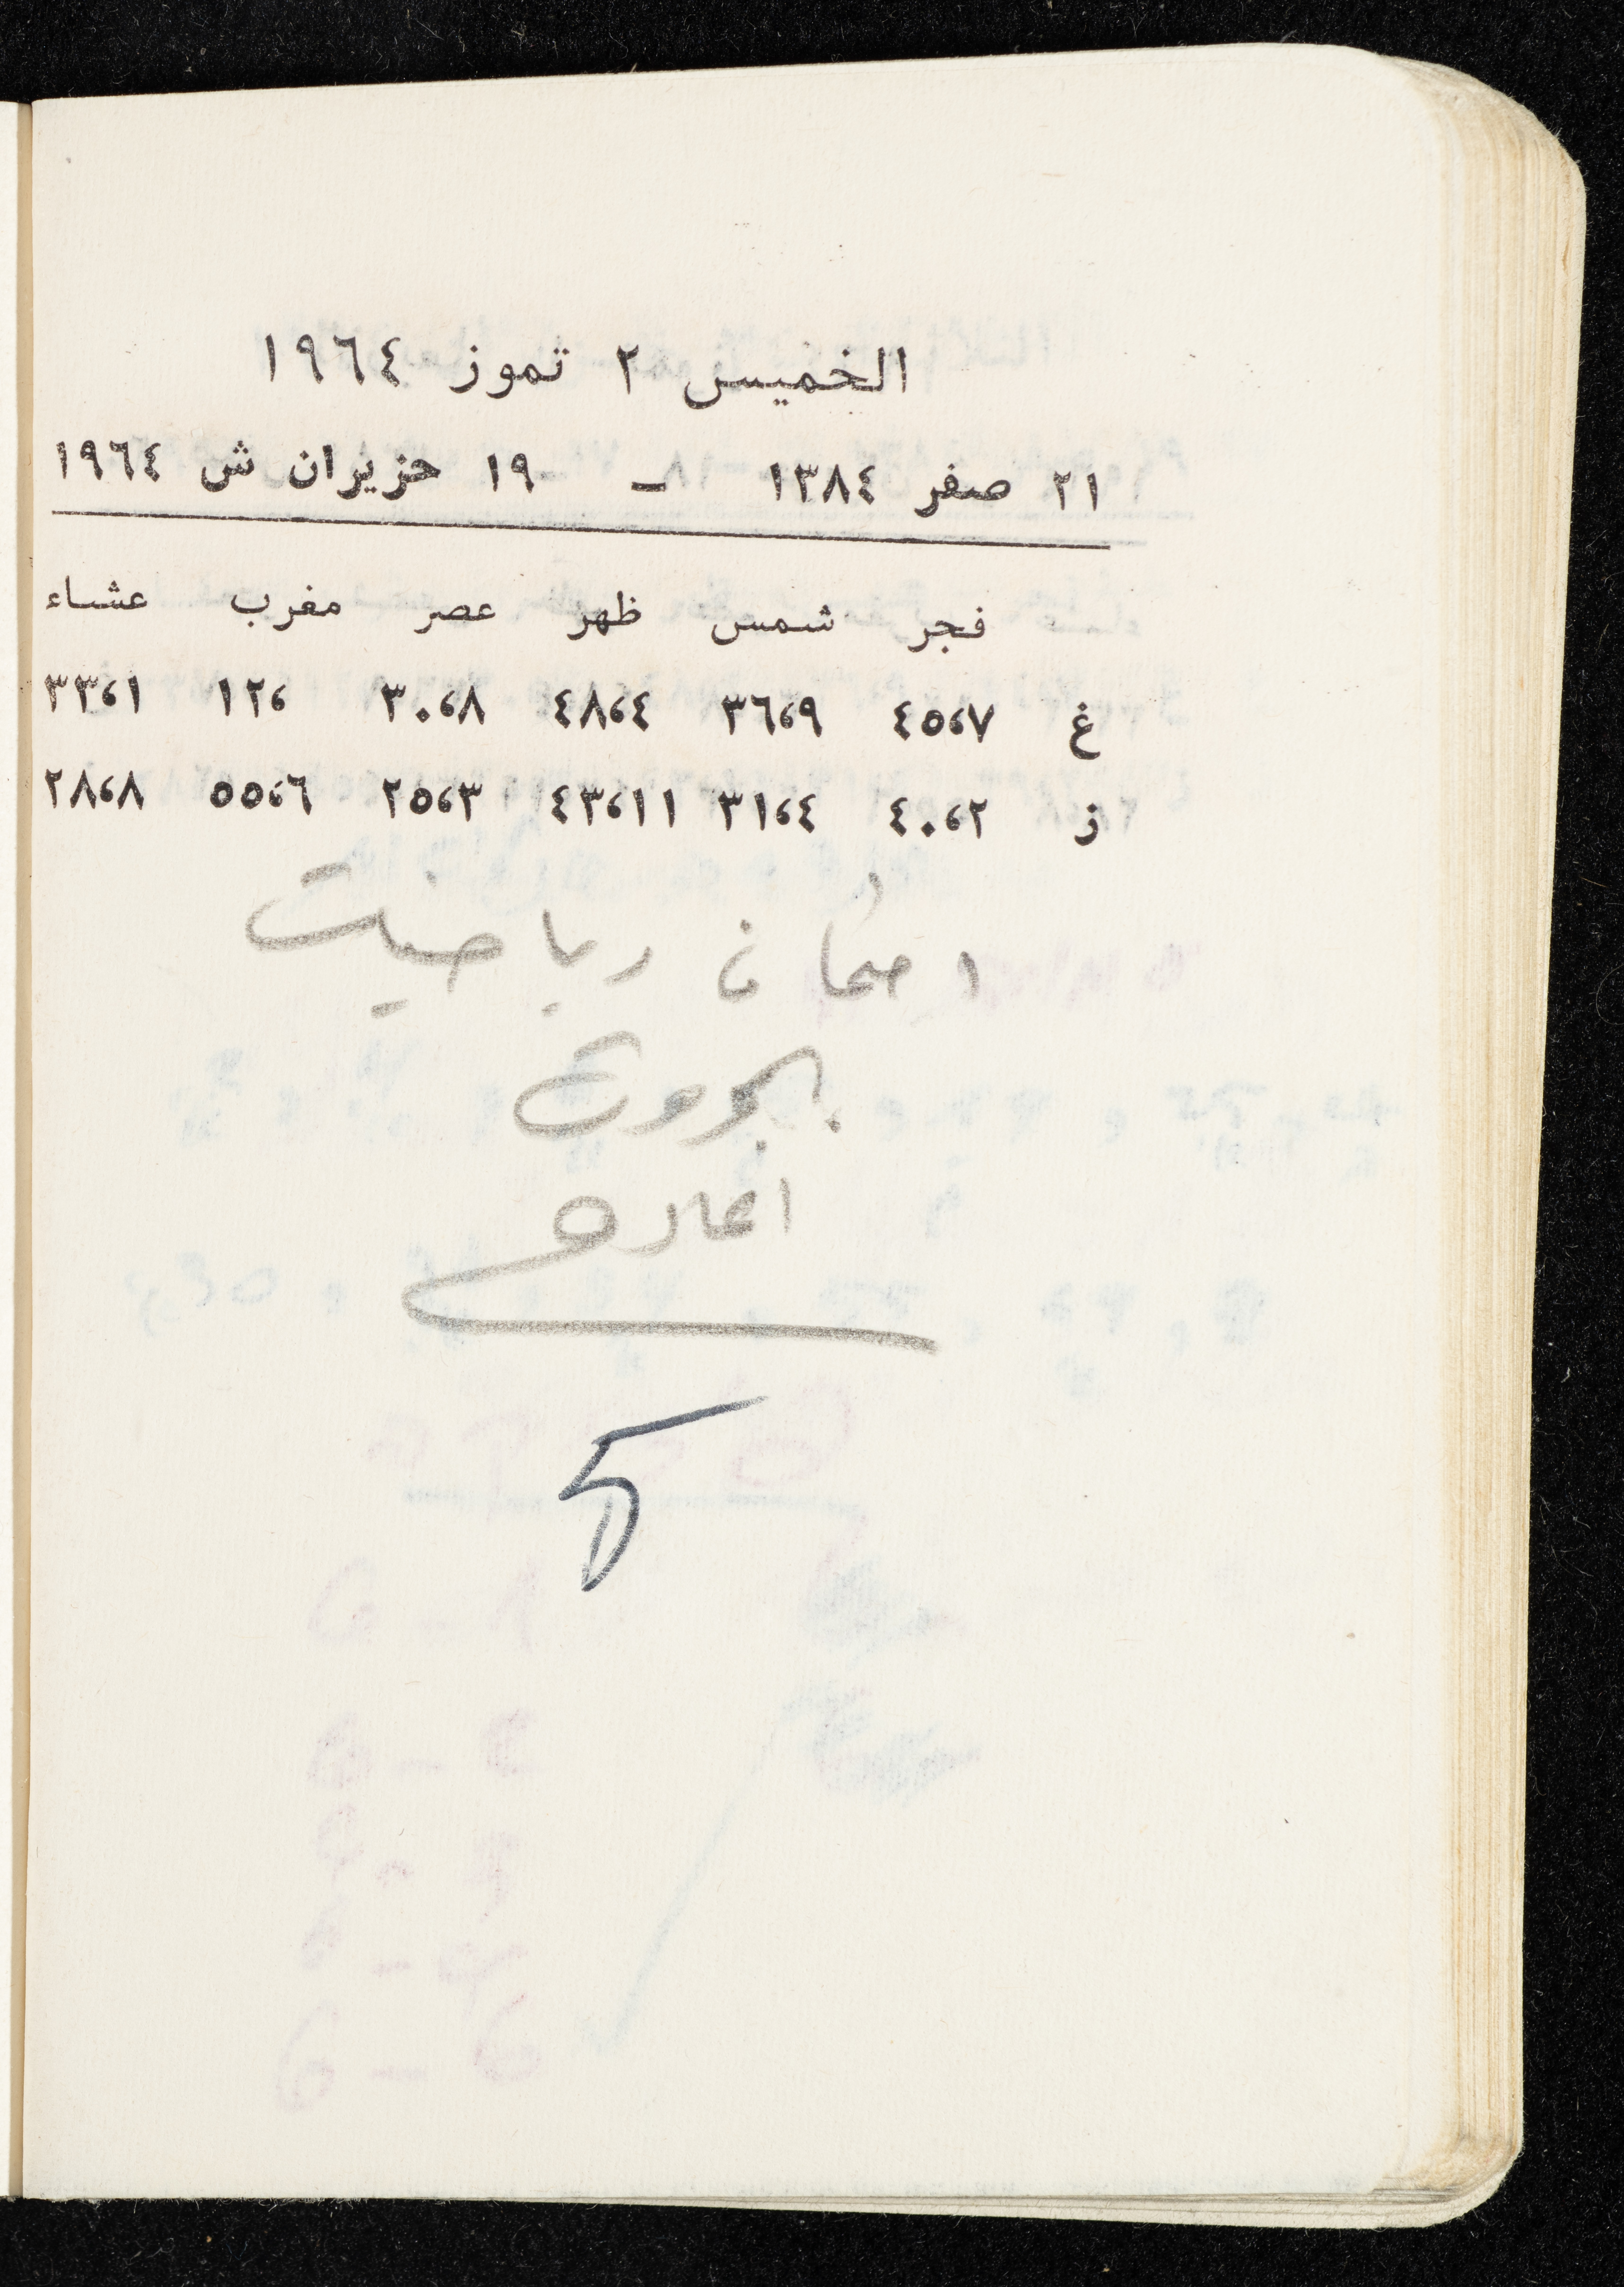 الخميس ٢ تموز ١٩٦٤
٢١ صفر ١٣٨٤ – ١٩ حزيران ش ١٩٦٤
فجر شمس ظهر عصر مغرب عشاء
غ ٤٥،٧ ٣٦،٩ ٤٨،٤ ٣٠،٨ ١٢، ٣٣،١
ز ٤٠،٢ ٣١،٤ ٤٣،١١ ٢٥،٣ ٥٥،٦ ٢٨،٨
امتحان رياضيات
5